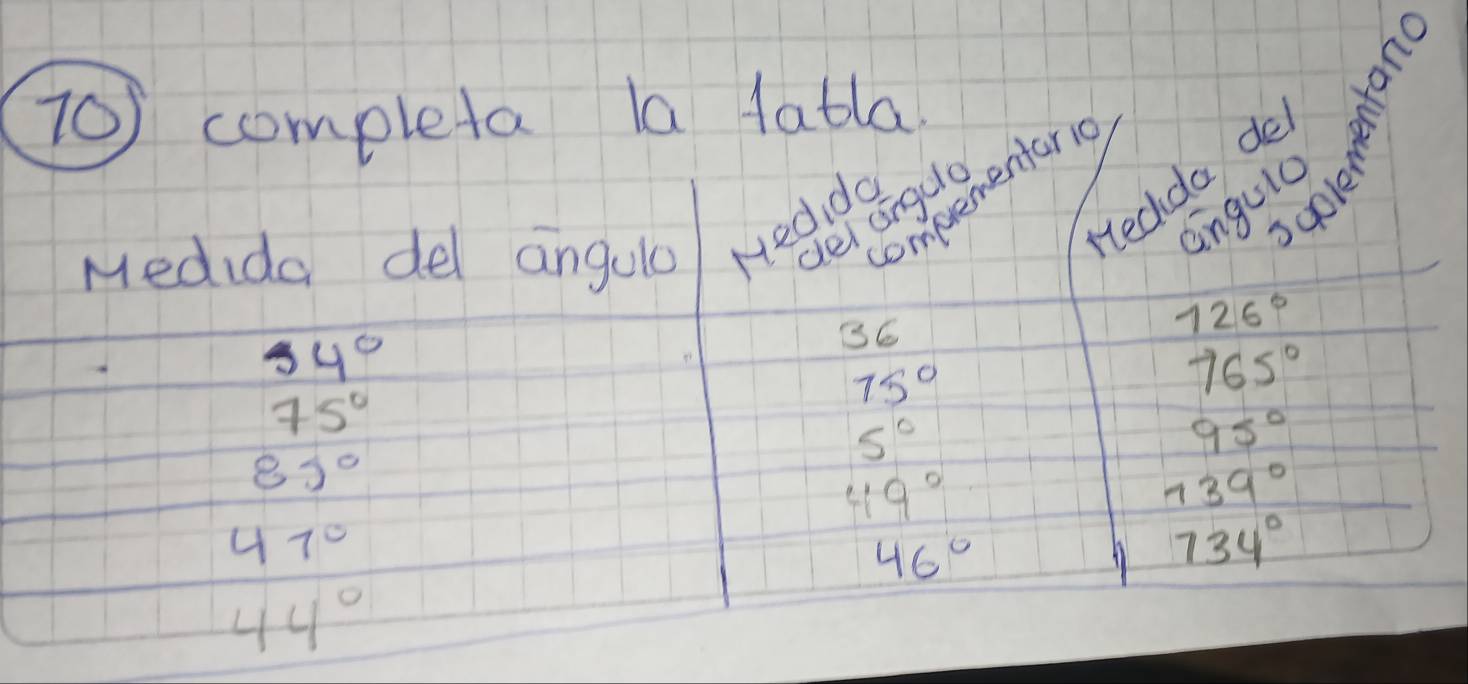 10) completa la tabla.
Medida del ángulo
Medida del ángulo complementario
Medida del ángulo suplementario
54° 36 126°
15° 75° 165°
85° 5° 95°
41° 49° 139°
44° 46° 134°